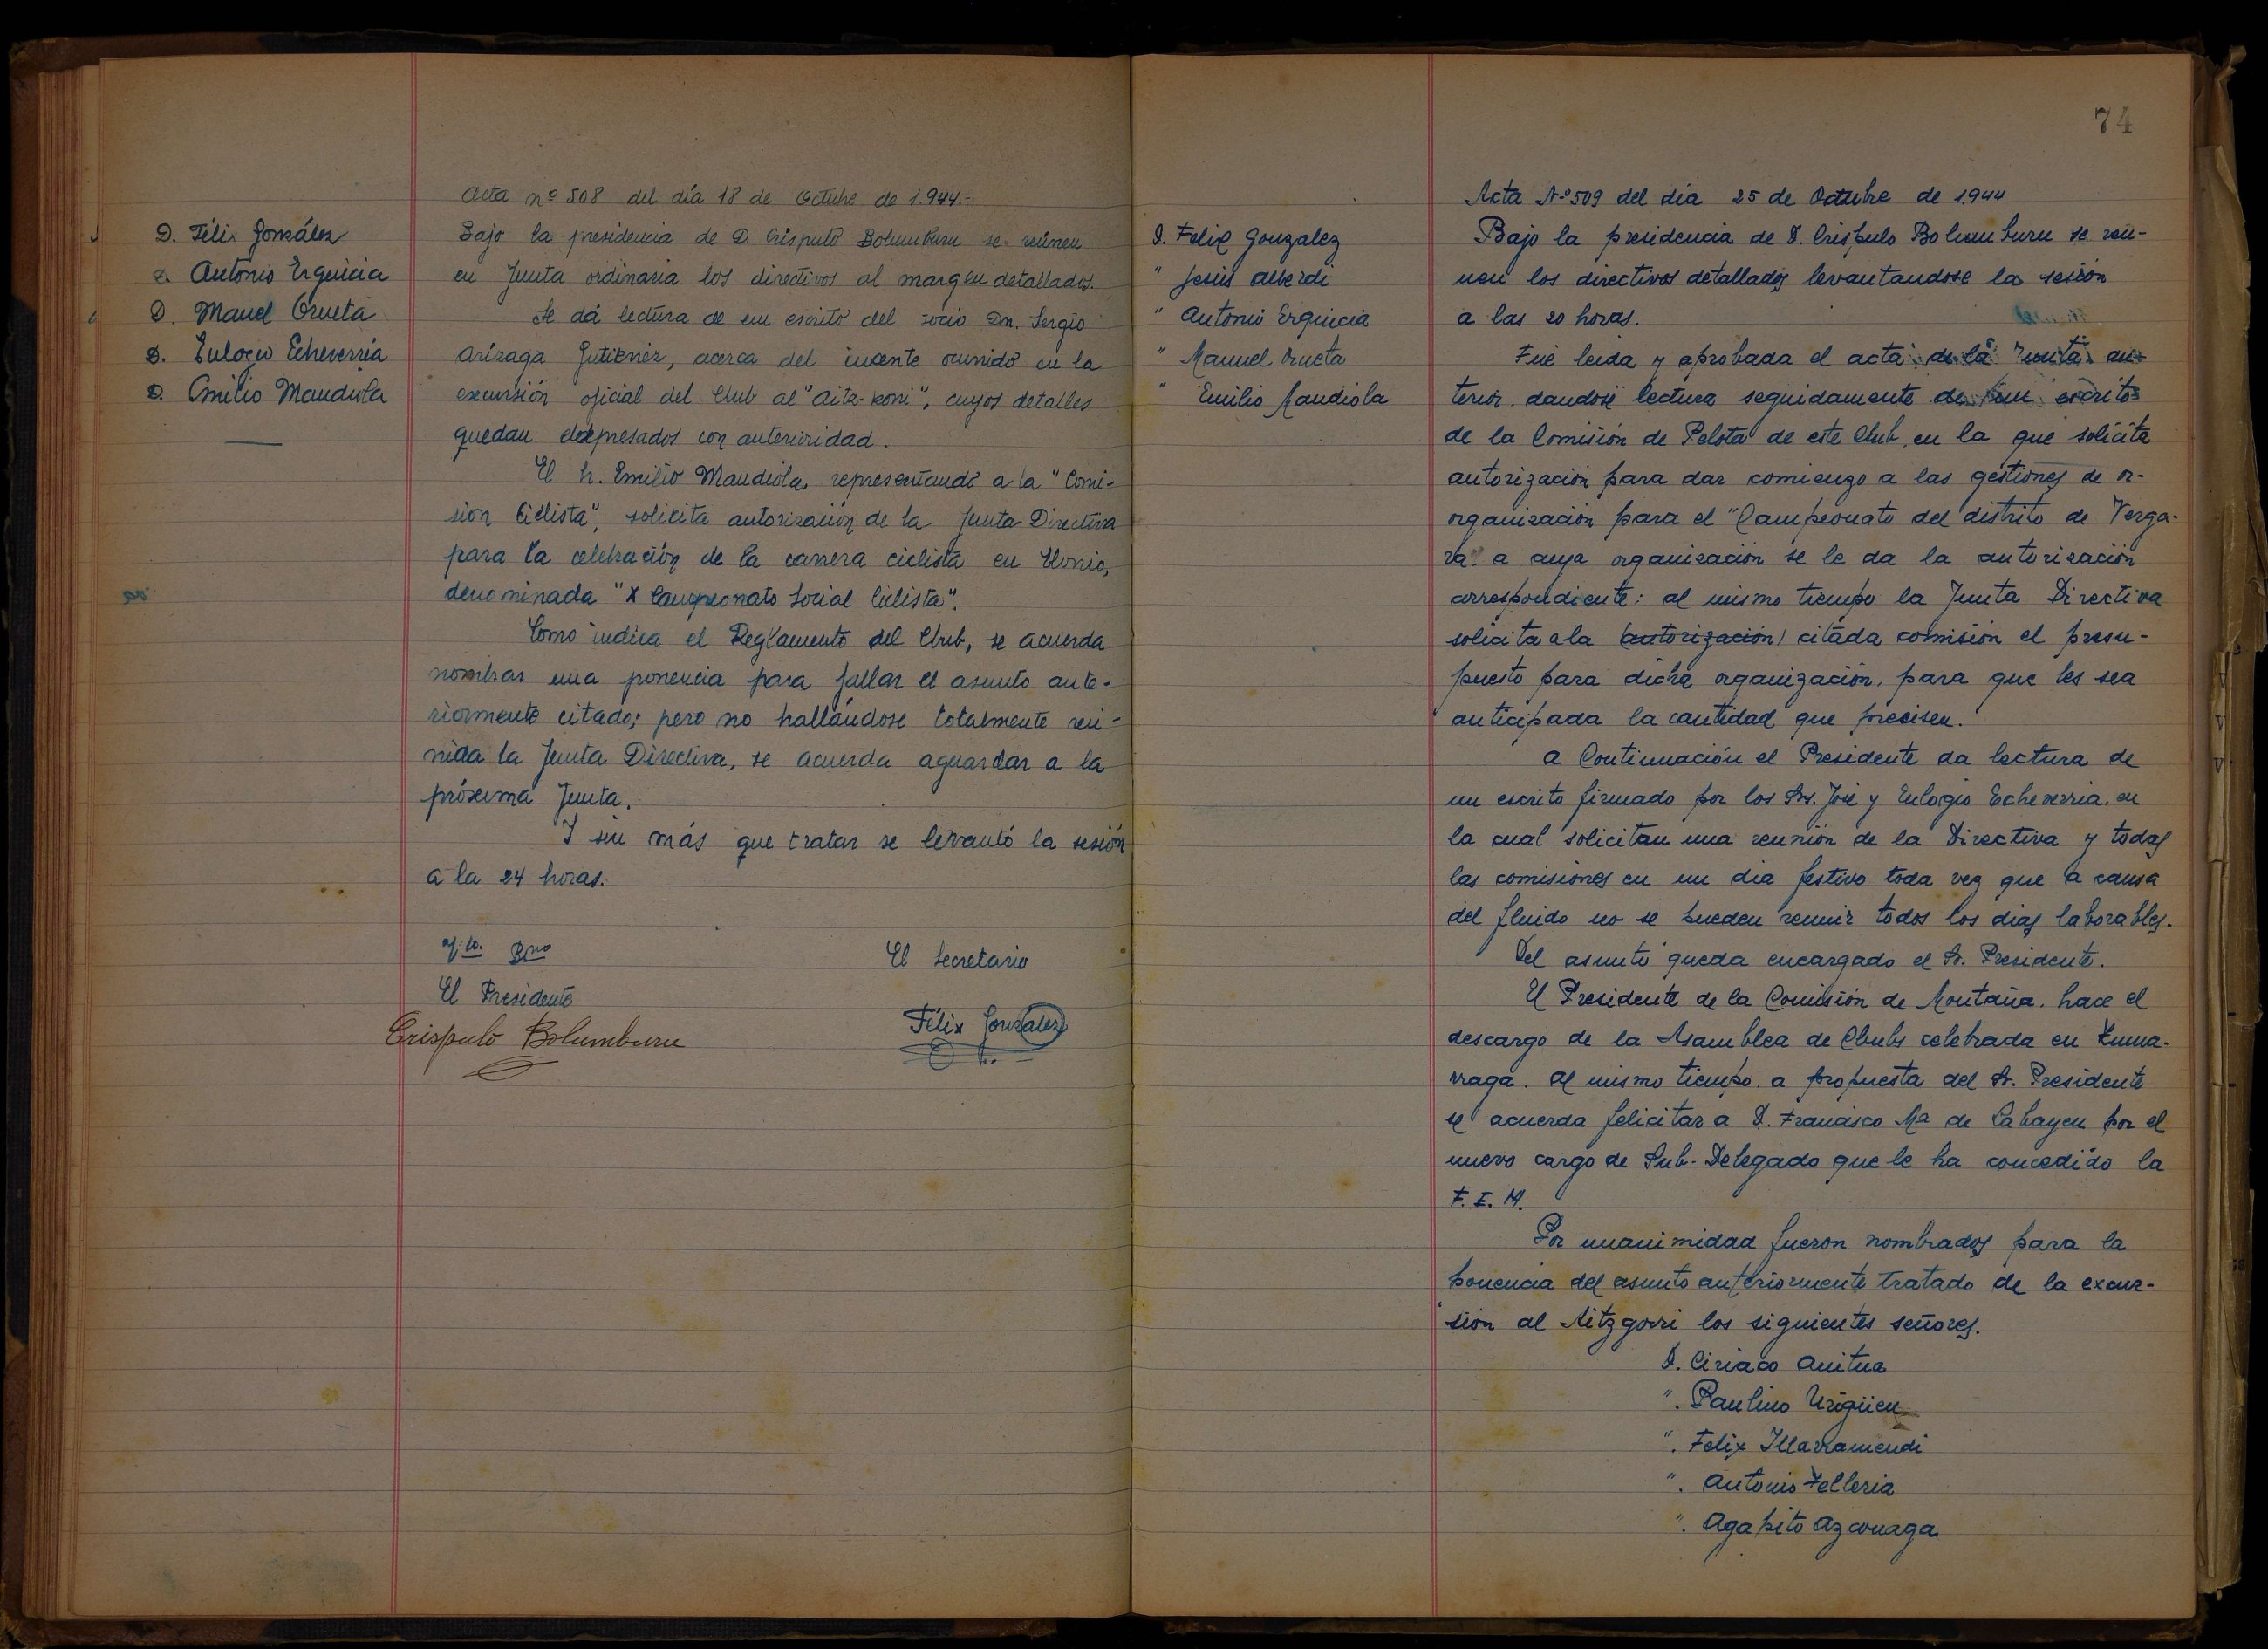 Acta nº 508 del día 18 de Octubre de 1.944.-
D. Félix González
D. Antonio Erquicia
D. Manuel Orueta
D. Eulogio Echeverria
D. Emilio Mandiola
Bajo la presidencia de D. Crispulo Bolumburu se reúnen
en Junta ordinaria los directivos al margen detallados.
Se dá lectura de un escrito del socio Dn. Sergio
Arizaga Gutiérrez, acerca del ocurrido en la
excursión oficial del Club al "Aitz-korri", cuyos detalles
quedan expresados con anterioridad.
El Sr. Emilio Mandiola, representando a la "Comi-
sion Ciclista", solicita autorización de la Junta Directiva
para la celebración de la carrera ciclista en Elorrio,
denominada "X Campeonato Social Ciclista".
Como indica el Reglamento del Club, se acuerda
nombrar una ponencia para fallar el asunto ante-
riormente citado; pero no hallándose totalmente reu-
nida la Junta Directiva, se acuerda aguardar a la
próxima Junta.
Y sin más que tratar se levantó la sesión
a la 24 horas.
Vto. Bno
El Presidente
Crispulo Bolumburu
El Secretario
Félix González
74
Acta Nº 509 del dia 25 de Octubre de 1944
D. Felix Gonzalez
" Jesús Alberdi
" Antonio Erquicia
" Manuel Orueta
" Emilio Mandiola
Bajo la presidencia de D. Crispulo Bolumburu se reu-
nen los directivos detallados levantandose la sesión
a las 20 horas.
Fué leida y aprobada el acta de la Junta an-
terior. dandose lectura seguidamente de un escrito
de la Comisión de Pelota de este Club, en la que solicita
autorización para dar comienzo a las gestiones de or-
organización para el "Campeonato del distrito de Verga-
ra" a cuya organización se le da la autorización
correspondiente: al mismo tiempo la Junta Directiva
solicita a la (autorización) citada comisión el presu-
puesto para dicha organización. para que les sea
anticipada la cantidad que precisen.
A Continuación el Presidente da lectura de
un escrito firmado por los Srs. José y Eulogio Echeverria. en
la cual solicitan una reunión de la Directiva y todas
las comisiones en un dia festivo toda vez que a causa
del fluido no se pueden reunir todos los dias laborables.
Del asunto queda encargado el Sr. Presidente.
El Presidente de la Comisión de Montaña. hace el
descargo de la Asamblea de Clubs celebrada en Zuma-
rraga. Al mismo tiempo. a propuesta del Sr. Presidente
se acuerda felicitar a D. Francisco Mª de Labayen por el
nuevo cargo de Sub-Delegado que le ha concedido la
F. E. M.
Por unanimidad fueron nombrados para la
ponencia del asunto anteriormente tratado de la excur-
sión al Aitzgorri los siguientes señores.
D. Ciriaco Anitua
". Paulino Urigüen
". Felix Illarramendi
". Antonio Telleria
". Agapito Azconaga